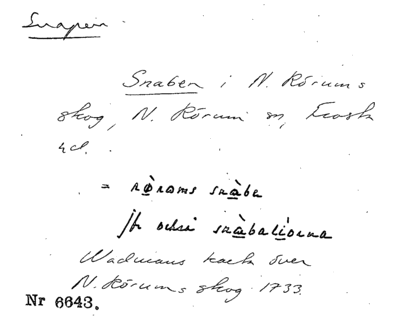 Snapen
Snaben i N. Rörums
skog, N. Rörum sn, Frosta
hd.
= rö̀rams snàbe
jfr också snàbalíorna
Wadmans karta över
N. Rörums skog 1733.
Nr 6643.